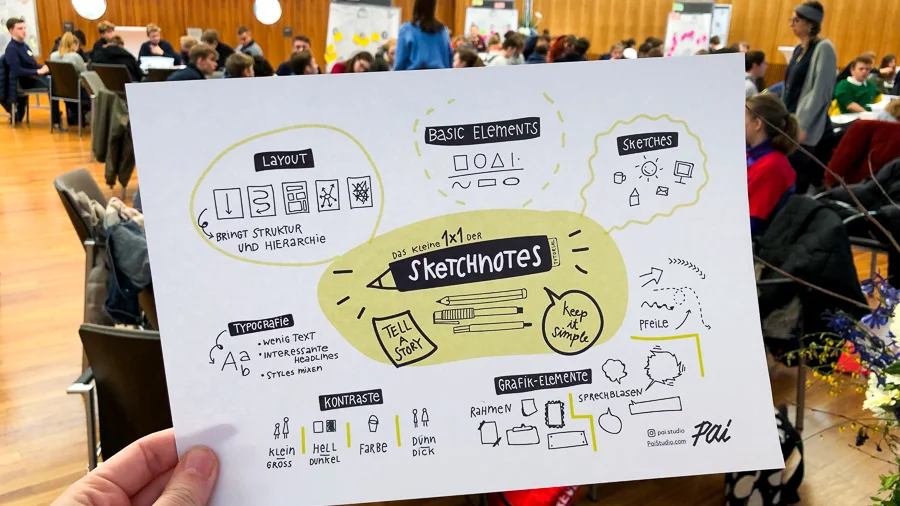 LAYOUT
BRINGT STRUKTUR
UND HIERARCHIE
BASIC ELEMENTS
SKETCHES
DAS KLEINE 1x1 DER
SKETCHNOTES
TUTORIAL
TELL
A
STORY
keep
it
simple
PFEILE
TYPOGRAFIE
Aa
b
• WENIG TEXT
• INTERESSANTE
HEADLINES
• STYLES MIXEN
KONTRASTE
KLEIN
GROSS
HELL
DUNKEL
FARBE
DÜNN
DICK
GRAFIK-ELEMENTE
RAHMEN
SPRECHBLASEN
pai.studio
PaiStudio.com
Pai